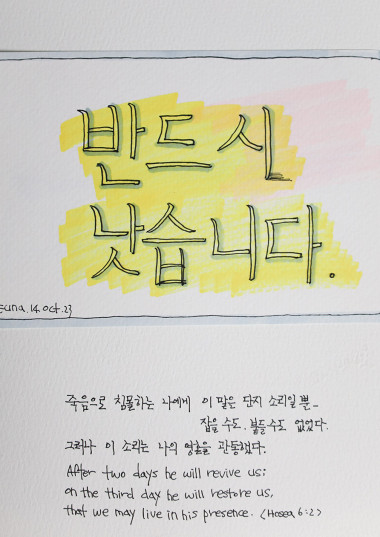 반드시
낫습니다.
Euna.14.oct.23
죽음으로 침몰하는 나에게 이 말은 단지 소리일 뿐_
잡을 수도, 붙들 수도 없었다.
그러나 이 소리는 나의 영혼을 관통했다.
After two days he will revive us;
on the third day he will restore us,
that we may live in his presence. <Hosea 6:2>